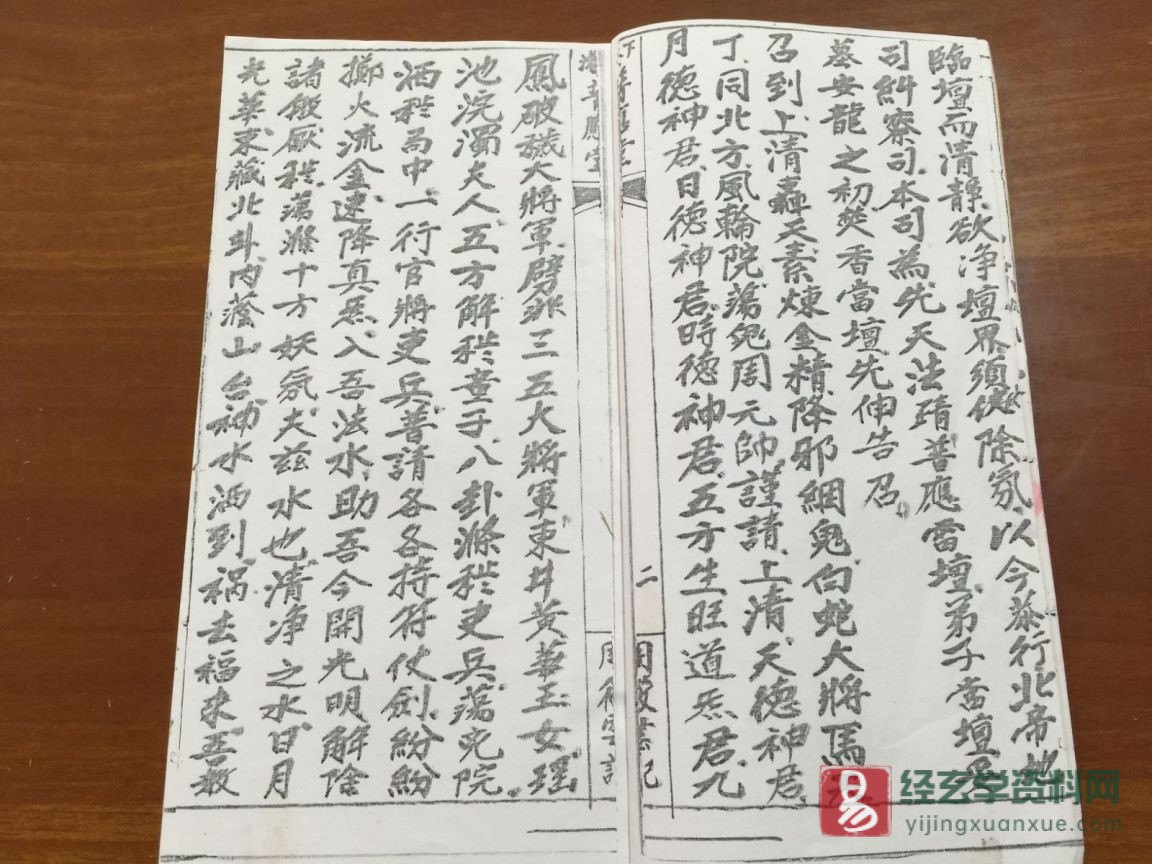 臨壇而清靜欲净壇界須従除氛以今恭行北帝地
司糾察司本司為先天法𨺚普應雷壇弟子當壇
墓安龍之初焚香當壇先伸告召
召到上清轟天素煉金精降邪綑鬼白蛇大將馬
丁同北方風輪院蕩鬼周元帥謹請上清天德神君
月德神君日德神君時德神君五方生旺道炁君九
二
鳳破穢大將軍劈非三五大將軍東井黃華玉女瑶
池浣濁夫人五方解秽童子八卦滌秽吏兵蕩兇院
洒秽局中一行官將吏兵普請各各持符仗劍紛紛
擲火流金速降真炁入吾法水助吾今開光明解除
諸般厭秽蕩滌十方妖氛夫兹水也清净之水日月
光華来藏北斗内瀅山台神水洒到祸去福来吾教
经玄学资料网
yijingxuanxue.com